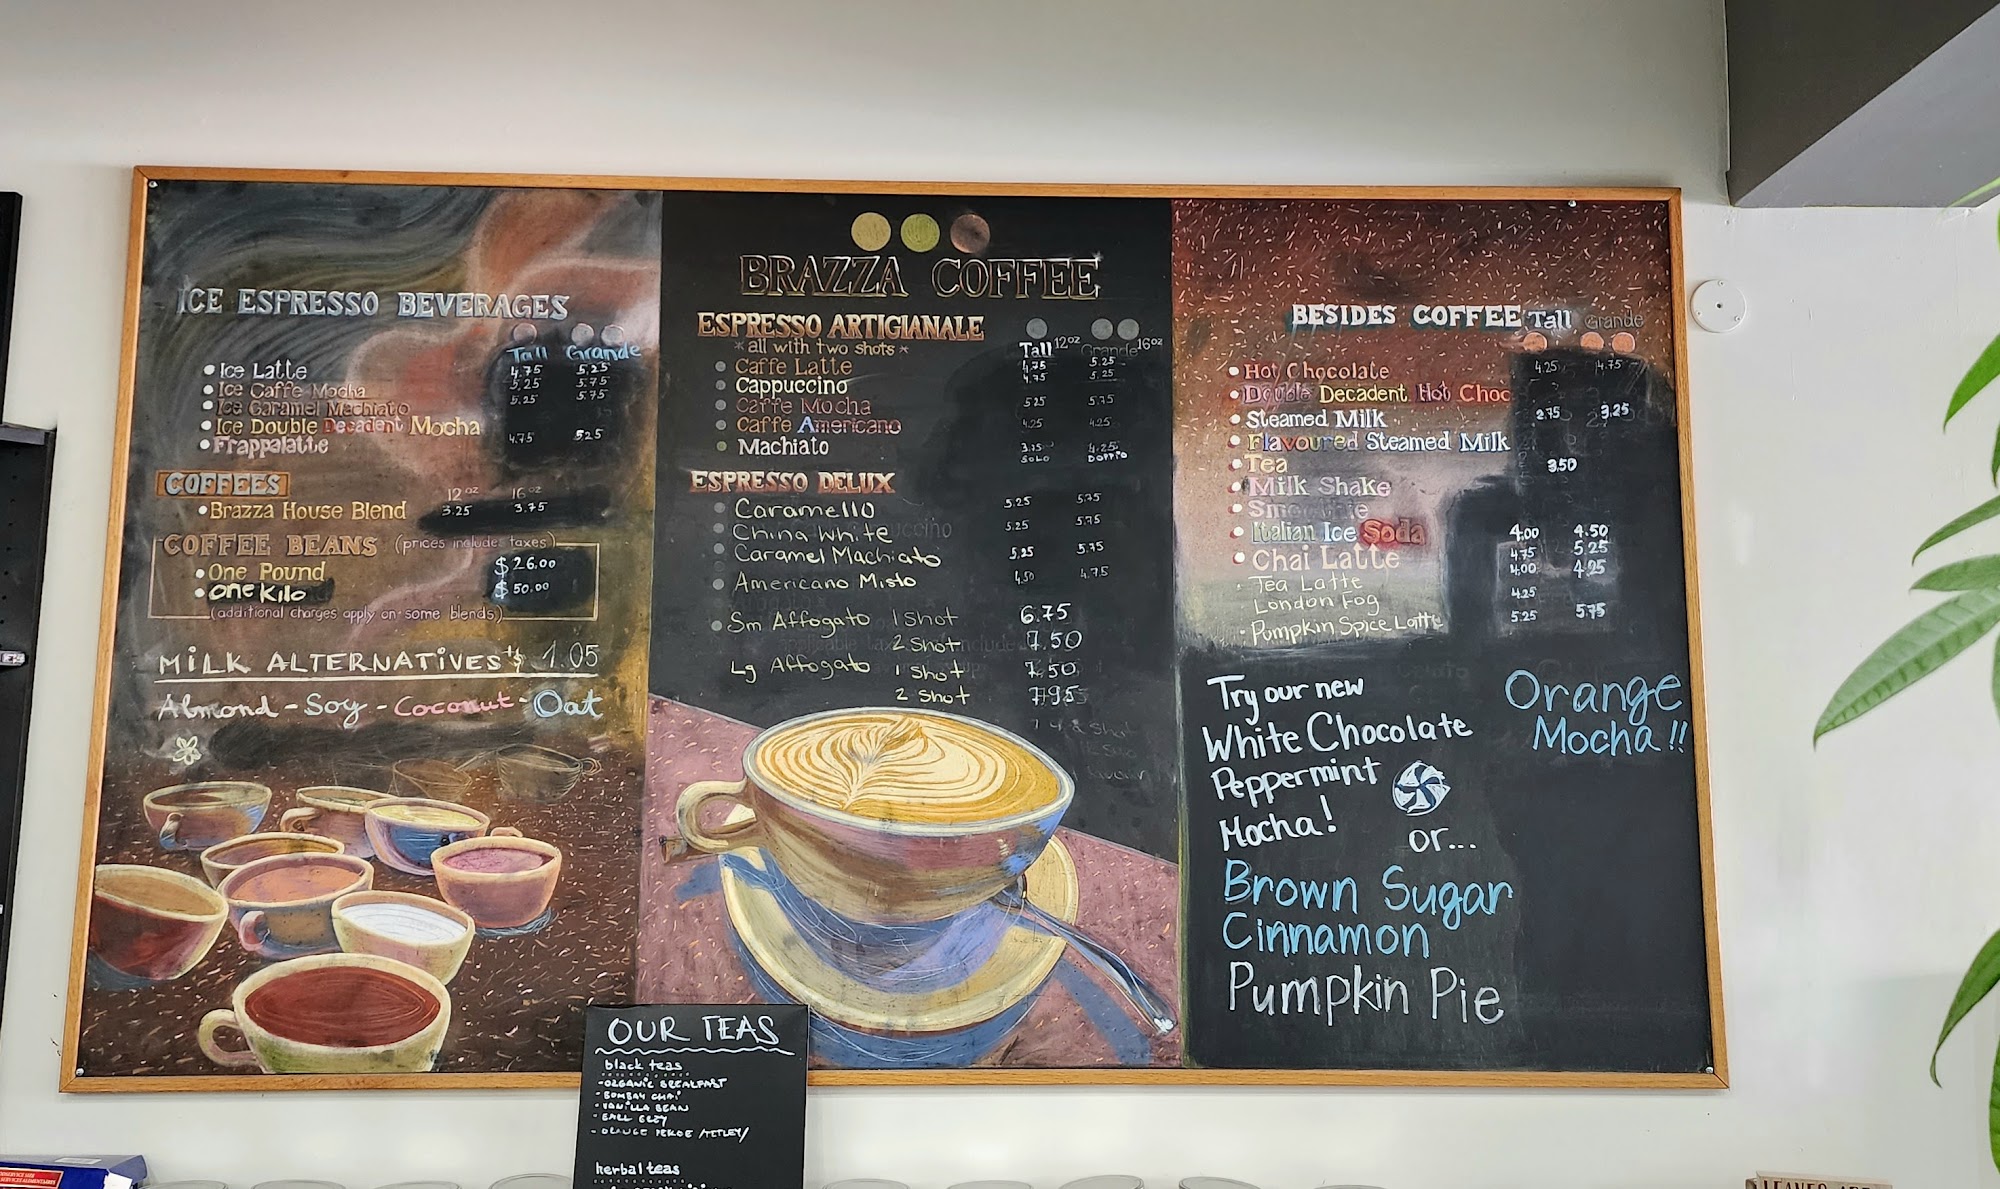 ICE ESPRESSO BEVERAGES
Tall Grande
Ice Latte 4.75 5.25
Ice Caffe Mocha 5.25 5.75
Ice Caramel Machiato 5.25 5.75
Ice Double Decadent Mocha
Frappalatte 4.75 5.25
COFFEES 12oz 16oz
Brazza House Blend 3.25 3.75
COFFEE BEANS (prices include taxes)
One Pound $26.00
One Kilo $50.00
(additional charges apply on some blends)
MILK ALTERNATIVES 1.05
Almond - Soy - Coconut - Oat
BRAZZA COFFEE
ESPRESSO ARTIGIANALE
*all with two shots*
Tall 12oz Grande 16oz
Caffe Latte 4.75 5.25
Cappuccino 4.75 5.25
Caffe Mocha 5.25 5.75
Caffe Americano 4.25 4.25
Machiato 3.75 4.25
SOLO DOPPIO
ESPRESSO DELUX
Caramello 5.25 5.75
China White 5.25 5.75
Caramel Machiato 5.25 5.75
Americano Misto 4.50 4.75
Sm Affogato 1 Shot 6.75
2 Shot 7.50
Lg Affogato 1 Shot 7.50
2 Shot 7.95
BESIDES COFFEE Tall Grande
Hot Chocolate 4.25 4.75
Double Decadent Hot Choc
Steamed Milk 2.75 3.25
Flavoured Steamed Milk
Tea 3.50
Milk Shake
Smoothie
Italian Ice Soda 4.00 4.50
Chai Latte 4.75 5.25
Tea Latte 4.00 4.25
London Fog 4.25
Pumpkin Spice Latte 5.25 5.75
Try our new
White Chocolate
Peppermint
Mocha!
or...
Orange
Mocha!!
Brown Sugar
Cinnamon
Pumpkin Pie
OUR TEAS
black teas
- ORGANIC BREAKFAST
- BOMBAY CHAI
- VANILLA BEAN
- EARL GREY
- ORANGE PEKOE /TETLEY/
herbal teas